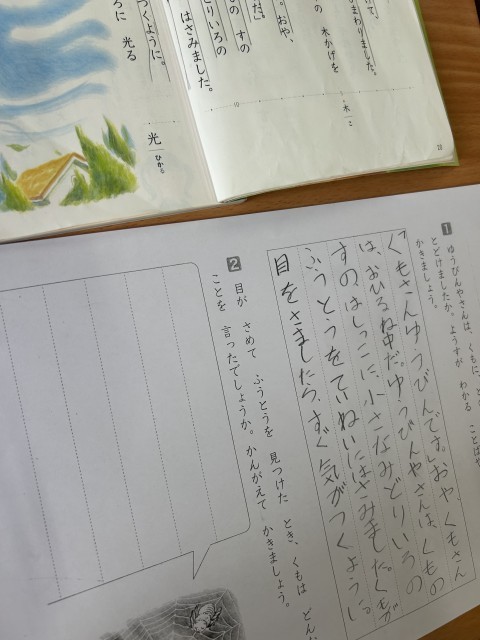 けて、
まわりました。
の 木かげを
だ」
。おや、
もの すの
どりいろの
はさみました。
つくように。
ろに 光る
10
5
木 こ
光 ひかる
28
1 ゆうびんやさんは、くもに、
とどけましたか。ようすが わかる ことばや
かきましょう。
「くもさんゆうびんです。」おや、くもさん
は、おひるね中だ。ゆうびんやさんは、くもの
すの、はしっこに、小さなみどりいろの
ふうとうをていねいにはさみました。くもが
目をさましたら、すぐ気がつくように。
2 目が さめて ふうとうを 見つけた とき、くもは どん
ことを 言ったでしょうか。かんがえて かきましょう。